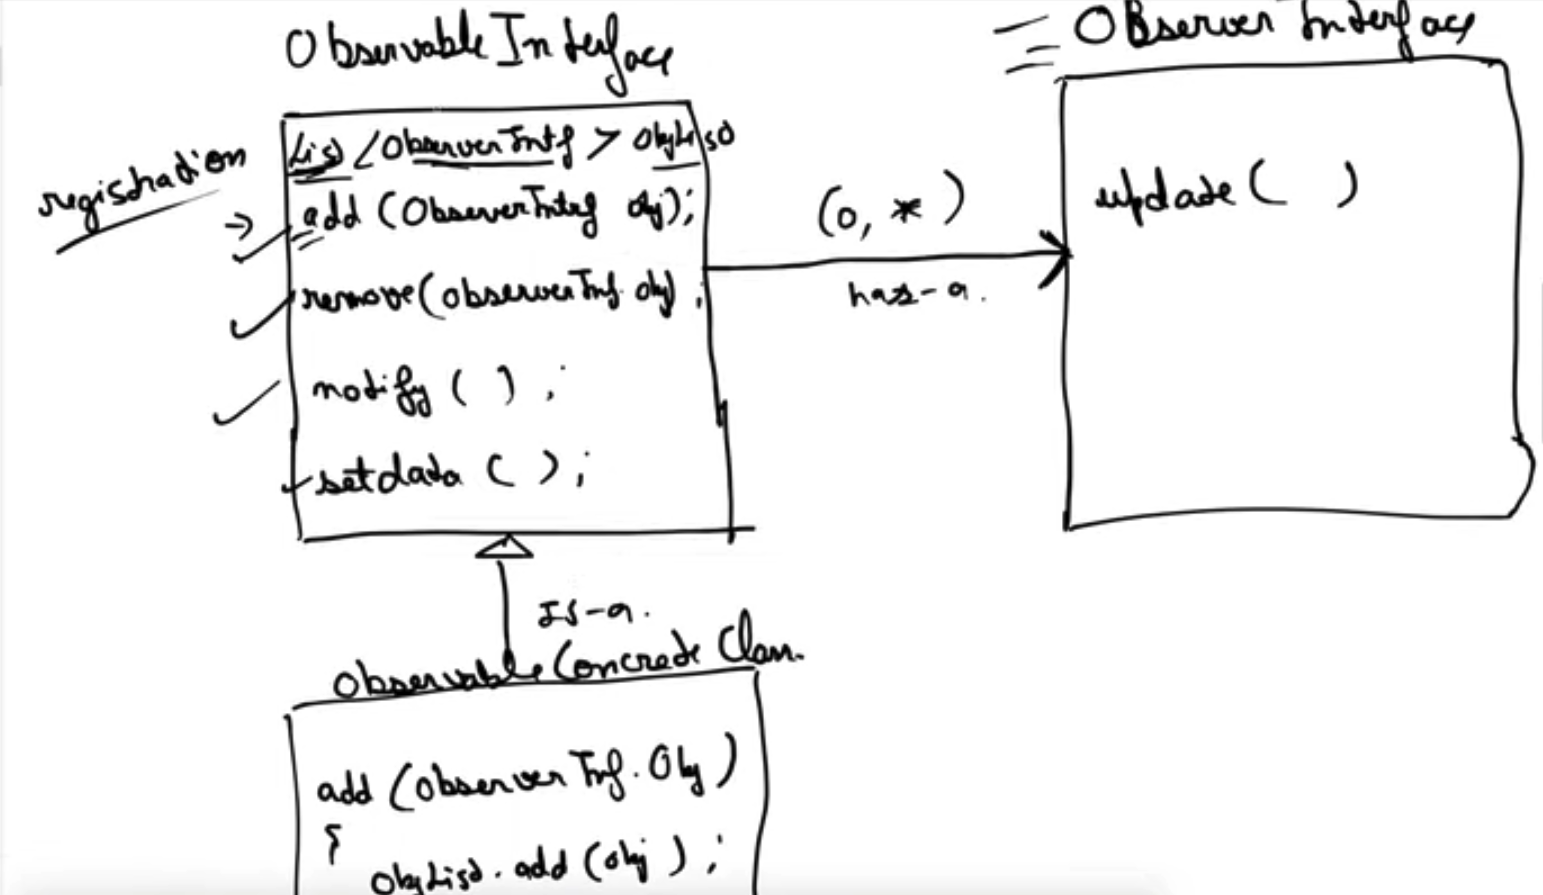 Observable Interface
Observer Interface
registration
List <ObserverIntf> ObjList
add (ObserverIntrf obj);
remove(observerInf. obj) ;
notify ( ) ;
setdata ( ) ;
(0, *)
has-a.
update ( )
Is-a.
Observable Concrete Class.
add (Observer Inf. Obj)
{
ObjList. add (obj) ;